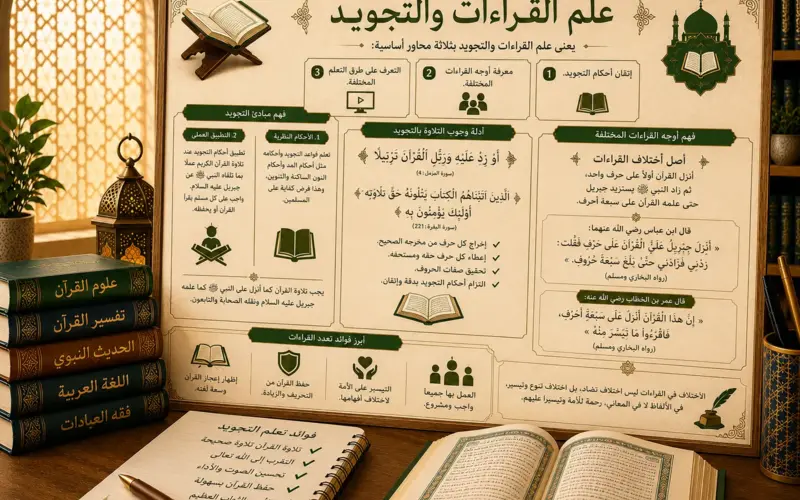 علم القراءات والتجويد
يعنى علم القراءات والتجويد بثلاثة محاور أساسية:
1 إتقان أحكام التجويد.
2 معرفة أوجه القراءات
المختلفة.
3 التعرف على طرق التعلم
المختلفة.
فهم أوجه القراءات المختلفة
أصل أختلاف القراءات
أنزل القرآن أولاً على حرف واحد،
ثم زاد النبي ﷺ يستزيد جبريل
حتى علمه القرآن على سبعة أحرف.
قال ابن عباس رضي الله عنهما:
« أنزل جبريل علي القرآن على حرف فقلت:
زدني فزادني حتى بلغ سبعة حروف. »
(رواه البخاري ومسلم)
قال عمر بن الخطاب رضي الله عنه:
« إن هذا القرآن أنزل على سبعة أحرف،
فاقرءوا ما تيسر منه »
(رواه البخاري ومسلم)
الأختلاف في القراءات ليس اختلاف تضاد، بل اختلاف تنوع وتيسير،
في الألفاظ لا في المعاني، رحمة للأمة وتيسيرا عليهم.
أدلة وجوب التلاوة بالتجويد
أو زد عليه ورتل القرآن ترتيلا
(سورة المزمل: 4)
الذين آتيناهم الكتاب يتلونه حق تلاوته:
أولئك يؤمنون به
(سورة البقرة: 221)
إخراج كل حرف من مخرجه الصحيح.
إعطاء كل حرف حقه ومستحقه.
تحقيق صفات الحروف.
التزام أحكام التجويد بدقة وإتقان.
فهم مبادئ التجويد
1. الأحكام النظرية
تعلم قواعد التجويد وأحكامه
مثل أحكام المد وأحكام
النون الساكنة والتنوين،
وهذا فرض كفاية على
المسلمين.
2. التطبيق العملي
تطبيق أحكام التجويد عند
تلاوة القرآن الكريم عملا
بما تلقاه النبي ﷺ عن
جبريل عليه السلام.
واجب على كل مسلم يقرأ
القرآن أو يحفظه.
يجب تلاوة القرآن كما أنزل على النبي ﷺ كما علمه
جبريل عليه السلام ونقله الصحابة والتابعون.
أبرز فوائد تعدد القراءات
العمل بها جميعا
واجب ومشروع.
التيسير على الأمة
لاختلاف أفهامها.
حفظ القرآن من
التحريف والزيادة.
إظهار إعجاز القرآن
وسعة لغته.
علوم القرآن
تفسير القرآن
الحديث النبوي
اللغة العربية
فقه العبادات
فوائد تعلم التجويد
تلاوة القرآن تلاوة صحيحة
التقرب إلى الله تعالى
تحسين الصوت والأداء
حفظ القرآن بسهولة
الثواب العظيم